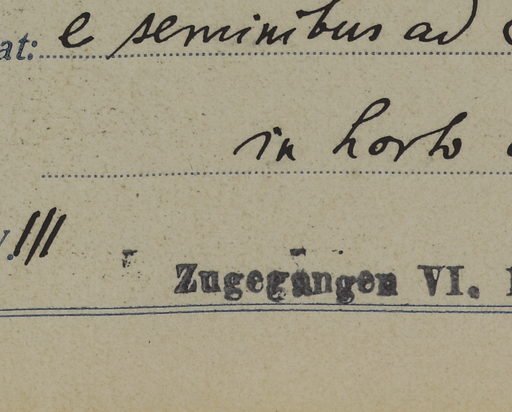 at: e seminibus ad
in horto
Zugegangen VI.